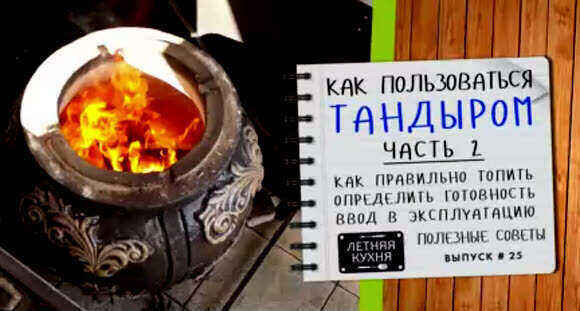 КАК ПОЛЬЗОВАТЬСЯ
ТАНДЫРОМ
ЧАСТЬ 2
КАК ПРАВИЛЬНО ТОПИТЬ
ОПРЕДЕЛИТЬ ГОТОВНОСТЬ
ВВОД В ЭКСПЛУАТАЦИЮ
ЛЕТНЯЯ
КУХНЯ
ПОЛЕЗНЫЕ СОВЕТЫ
ВЫПУСК # 25